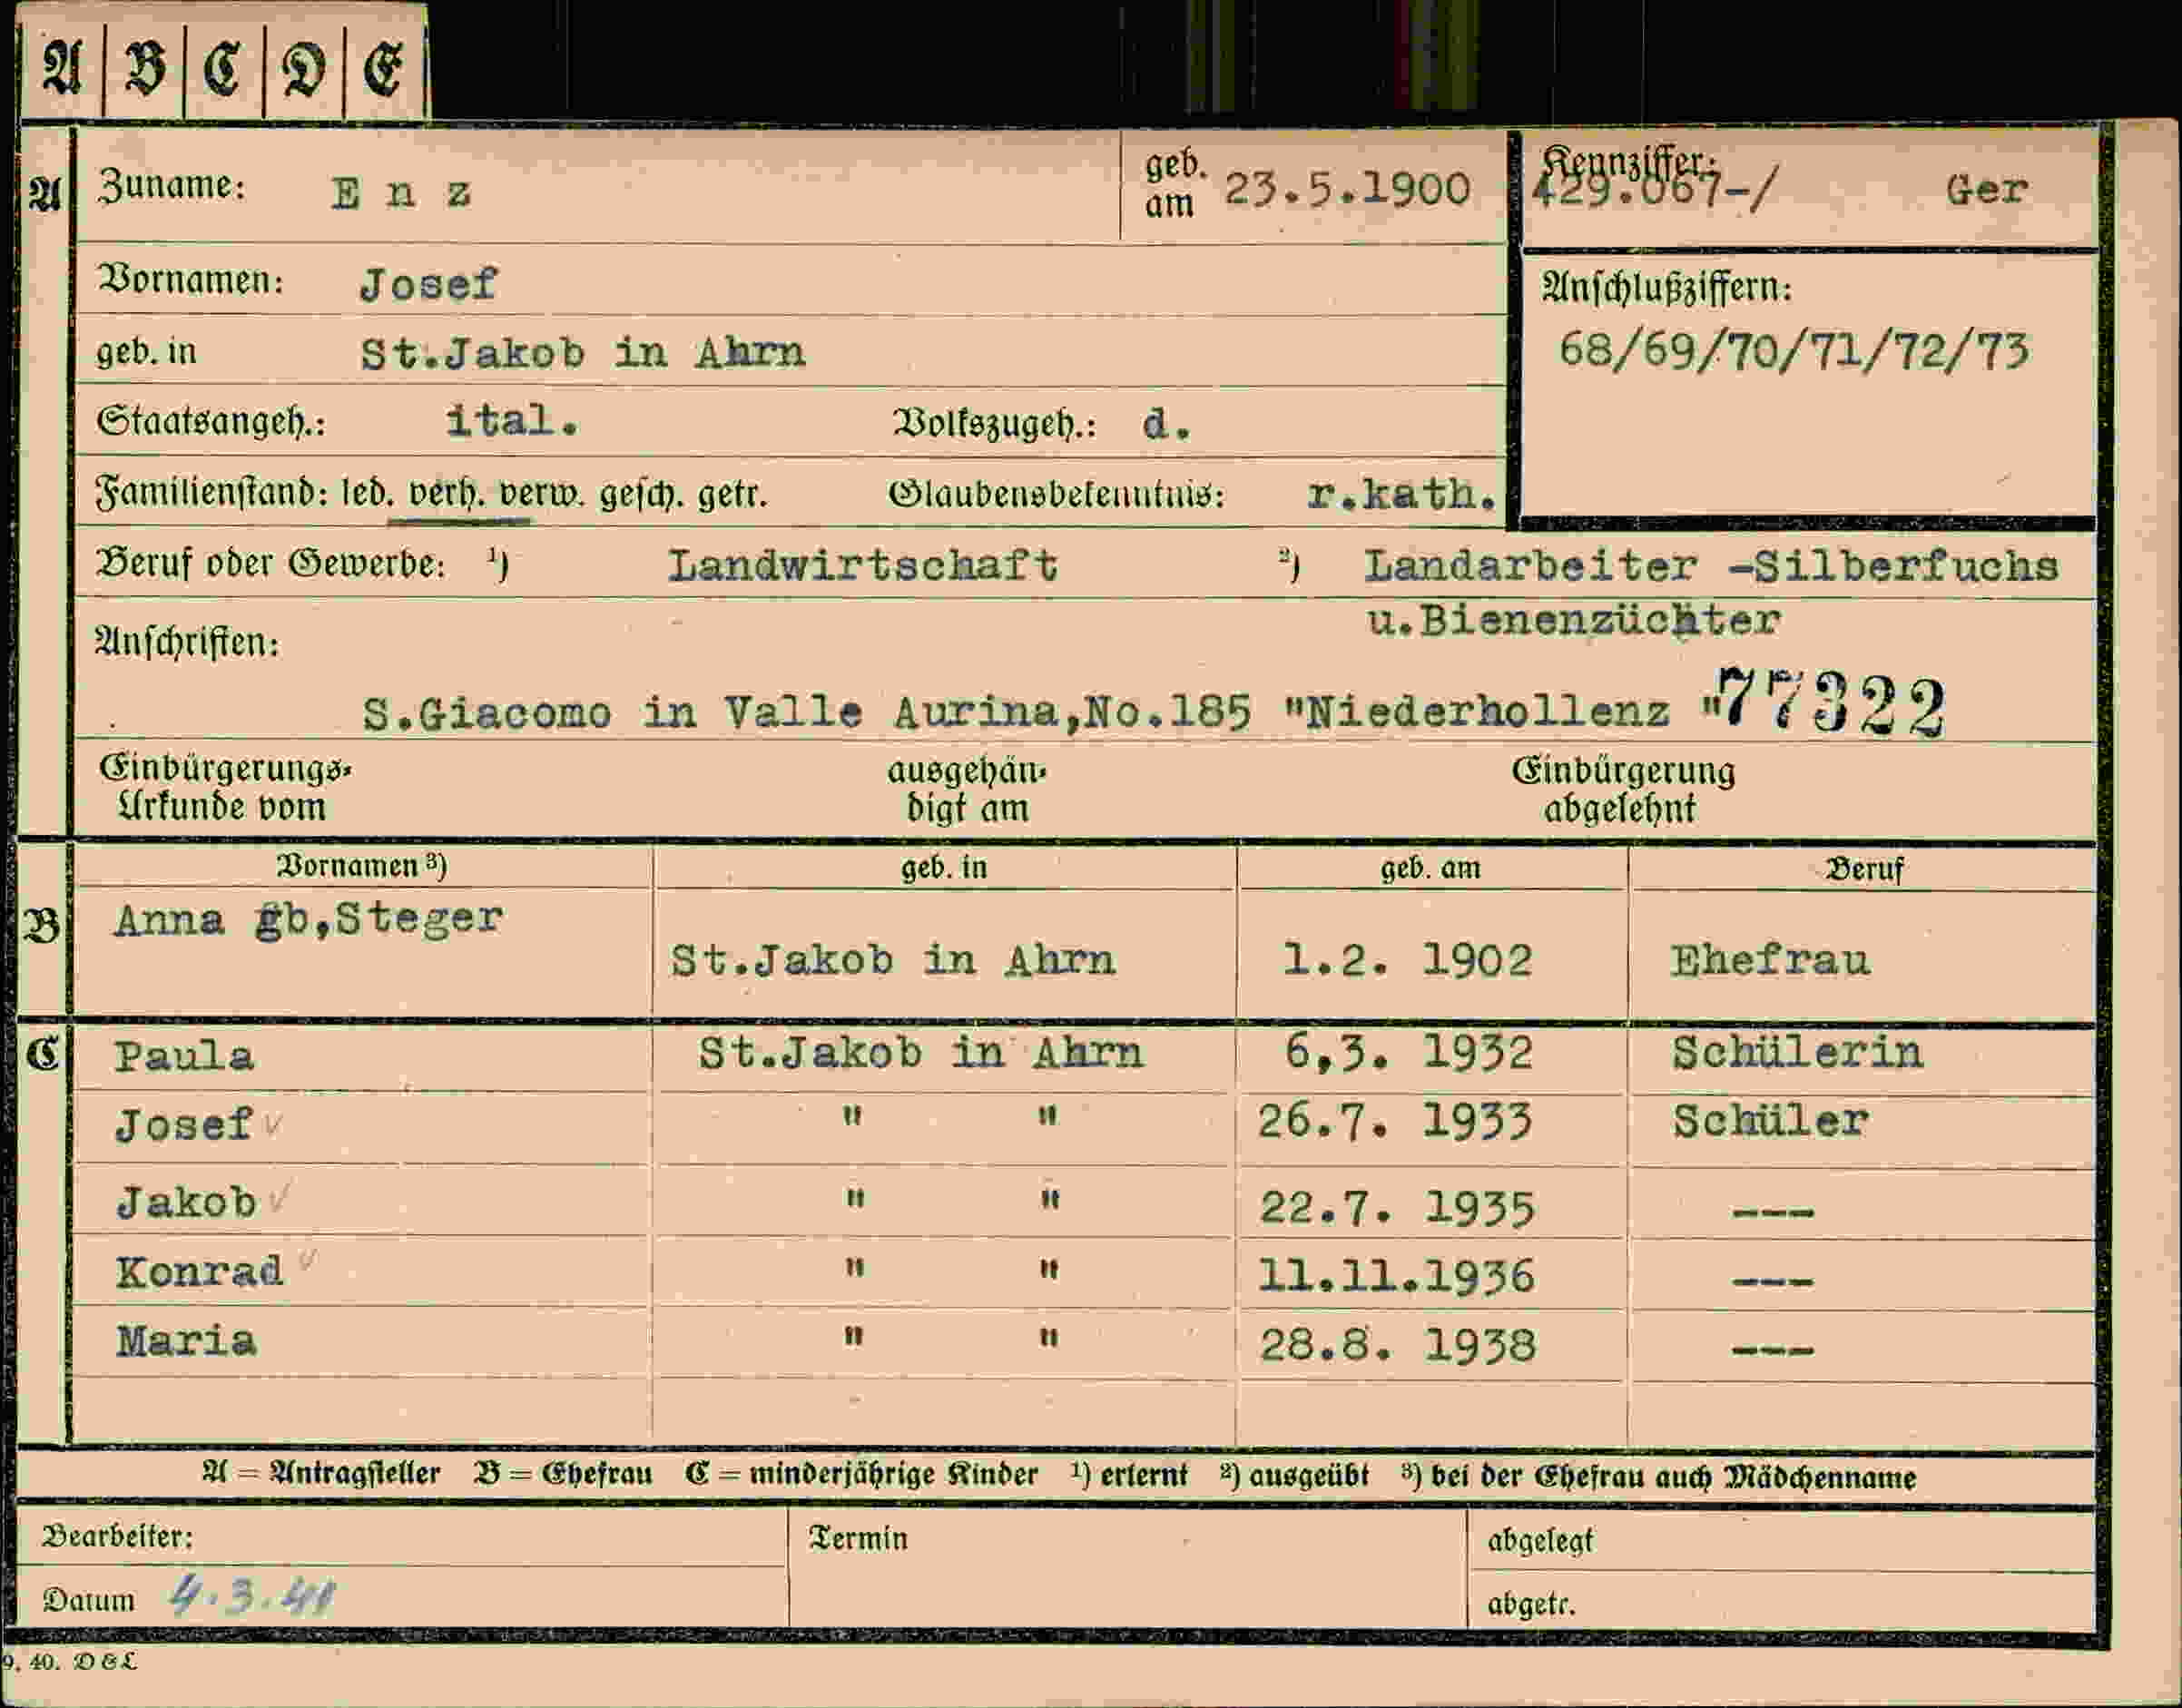 A B C D E
A Zuname: E n z geb. am 23.5.1900 Kennziffer: 429.067-/ Ger
Vornamen: Josef Anschlußziffern:
geb. in St.Jakob in Ahrn 68/69/70/71/72/73
Staatsangeh.: ital. Volkszugeh.: d.
Familienstand: led. verh. verw. gesch. getr. Glaubensbekenntnis: r.kath.
Beruf oder Gewerbe: 1) Landwirtschaft 2) Landarbeiter -Silberfuchs
u.Bienenzüchter
Anschriften:
S.Giacomo in Valle Aurina,No.185 "Niederhollenz " 77322
Einbürgerungs- ausgehän- Einbürgerung
Urkunde vom digt am abgelehnt
Vornamen 3) geb. in geb. am Beruf
B Anna gb,Steger
St.Jakob in Ahrn 1.2. 1902 Ehefrau
C Paula St.Jakob in Ahrn 6,3. 1932 Schülerin
Josef " " 26.7. 1933 Schüler
Jakob " " 22.7. 1935 ---
Konrad " " 11.11.1936 ---
Maria " " 28.8. 1938 ---
A = Antragsteller B = Ehefrau C = minderjährige Kinder 1) erlernt 2) ausgeübt 3) bei der Ehefrau auch Mädchenname
Bearbeiter: Termin abgelegt
Datum 4.3.41 abgetr.
9. 40. D & L